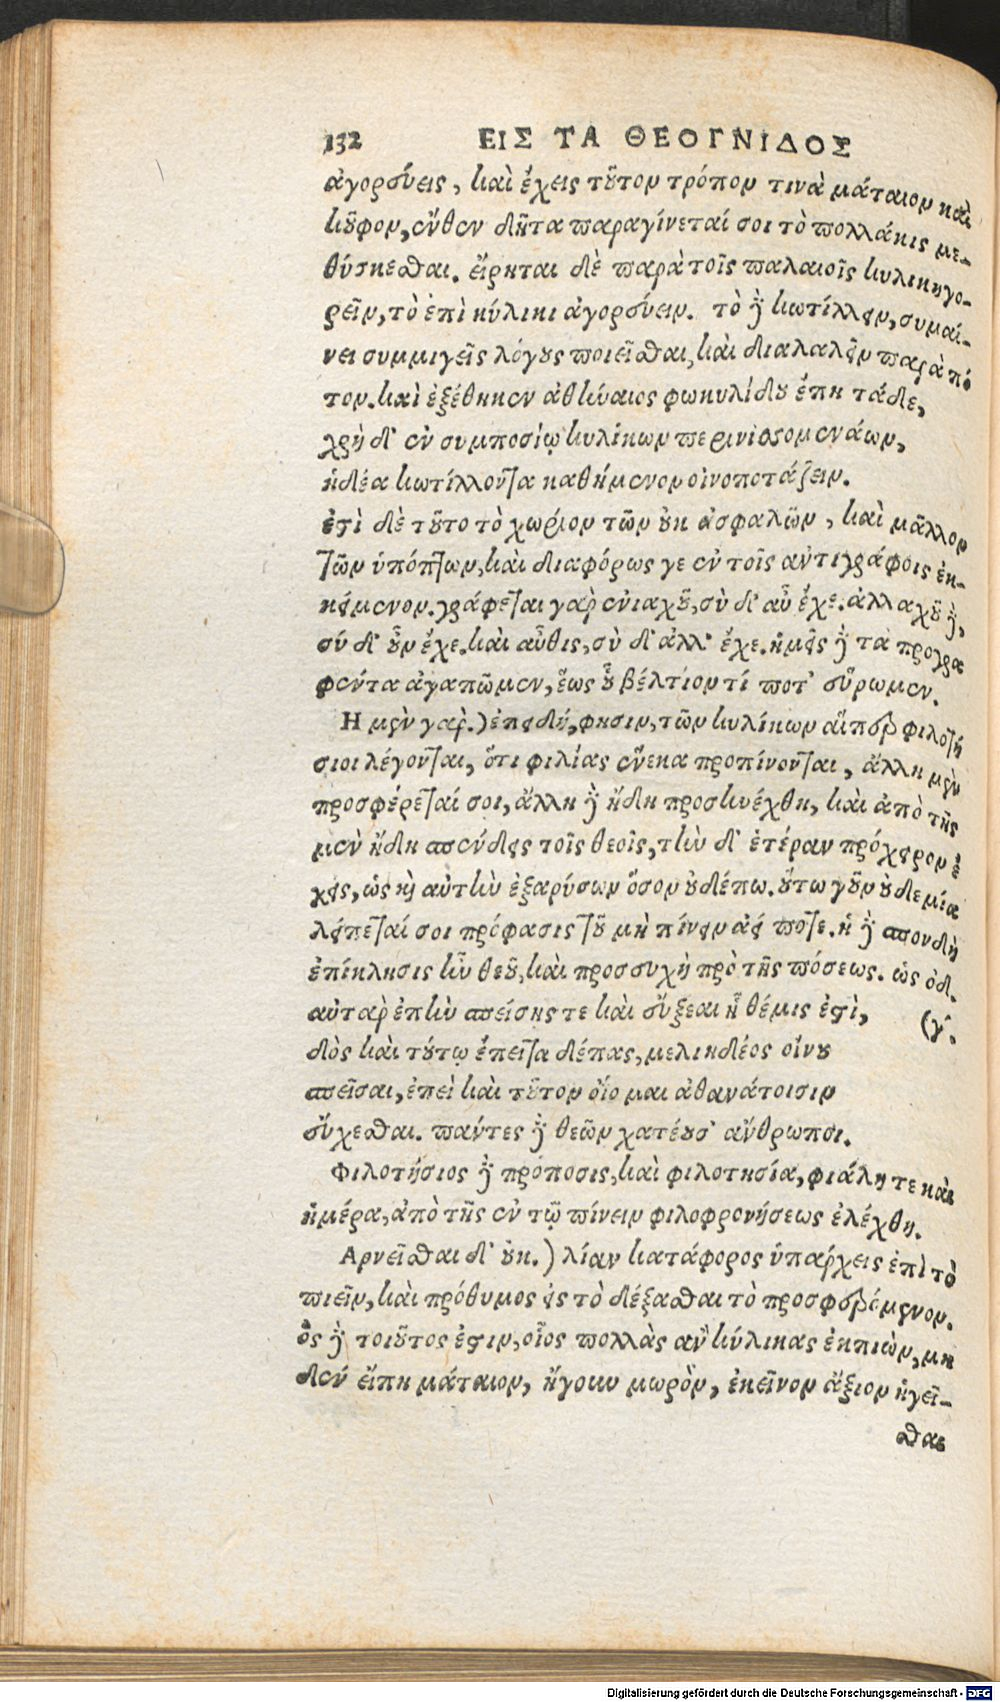 132 ΕΙΣ ΤΑ ΘΕΟΓΝΙΔΟΣ
ἀγορεύεις, καὶ ἔχεις τοῦτον τρόπον τινὰ μάταιον καὶ
κοῦφον, ἔνθεν δῆτα παραγίνεταί σοι τὸ πολλάκις με-
θύσκεσθαι. εἴρηται δὲ παρὰ τοῖς παλαιοῖς κυλικηγο-
ρεῖν, τὸ ἐπὶ κύλικι ἀγορεύειν. τὸ δὲ κωτίλλειν, συμαί-
νει συμμιγεῖς λόγους ποιεῖσθαι, καὶ διαλαλεῖν παρὰ πό
τον. καὶ ἐξέθηκεν ἀθήναιος φωκυλίδου ἔπη τάδε,
χρὴ δ' ἐν συμποσίῳ κυλίκων περινισσομενάων,
ἡδέα κωτίλλοντα καθήμενον οἰνοποτάζειν.
ἐστὶ δὲ τοῦτο τὸ χωρίον τῶν οὐκ ἀσφαλῶν, καὶ μᾶλλον
τῶν ὑπόπτων, καὶ διαφόρως γε ἐν τοῖς ἀντιγράφοις ἐκ-
κείμενον. γράφεται γὰρ ἐνιαχοῦ, σὺ δ' αὖ ἔχε. ἀλλαχοῦ δὲ,
σύ δ' οὖν ἔχε. καὶ αὖθις, σὺ δ' ἀλλ' ἔχε. ἡμεῖς δὲ τὰ προγρα
φέντα ἀγαπῶμεν, ἕως οὗ βέλτιον τί ποτ' εὕρωμεν.
Η μὲν γὰρ.) ἐπειδή, φησιν, τῶν κυλίκων αἵπερ φιλοτή
σιοι λέγονται, ὅτι φιλίας ἕνεκα προπίνονται, ἄλλη μὲν
προσφέρεταί σοι, ἄλλη δὲ ἤδη προσηνέχθη, καὶ ἀπὸ τῆς
μὲν ἤδη σπένδεις τοῖς θεοῖς, τὴν δ' ἑτέραν πρόχειρον ἔ
χεις, ὡς καὶ αὐτὴν ἐξαρύσων ὅσον οὐδέπω. οὕτω γοῦν οὐδεμία
λείπεταί σοι πρόφασις τοῦ μὴ πίνειν ἀεί ποτε. ἡ δὲ σπονδὴ
ἐπίκλησις ἦν θεοῦ, καὶ προσευχὴ πρὸ τῆς πόσεως. ὡς ὀδ.
αὐτὰρ ἐπὴν σπείσῃς τε καὶ εὔξεαι ἣ θέμις ἐστὶ, (γ'.
δὸς καὶ τούτῳ ἔπειτα δέπας, μελιηδέος οἴνου
σπεῖσαι, ἐπεὶ καὶ τοῦτον ὀΐομαι ἀθανάτοισιν
εὔχεσθαι. πάντες δὲ θεῶν χατέουσ' ἄνθρωποι.
Φιλοτήσιος δὲ πρόποσις, καὶ φιλοτησία, φιάλη τε καὶ
ἡμέρα, ἀπὸ τῆς ἐν τῷ πίνειν φιλοφρονήσεως ἐλέχθη.
Αρνεῖσθαι δ' οὐκ.) λίαν κατάφορος ὑπάρχεις ἐπὶ τὸ
πιεῖν, καὶ πρόθυμος εἰς τὸ δέξασθαι τὸ προσφερόμενον.
ὃς δὲ τοιοῦτος ἐστιν, οἷος πολλὰς ἂν κύλικας ἐκπιὼν, μη
δὲν εἴπῃ μάταιον, ἤγουν μωρὸν, ἐκεῖνον ἄξιον ἡγεῖ-
σθαι
Digitalisierung gefördert durch die Deutsche Forschungsgemeinschaft - DFG